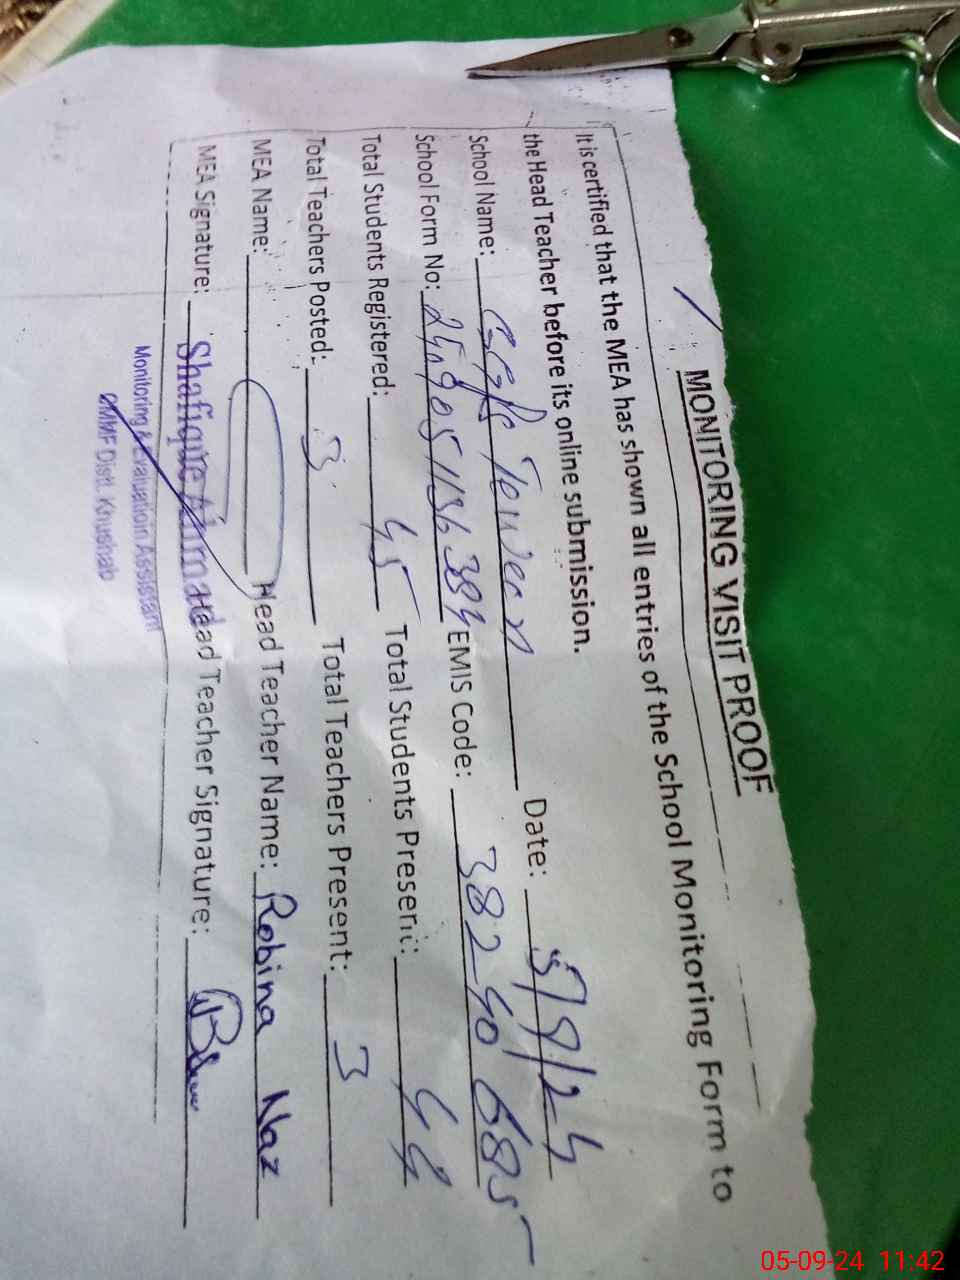 MONITORING VISIT PROOF
It is certified that the MEA has shown all entries of the School Monitoring Form to
the Head Teacher before its online submission.
School Name: Date: 5/9/24
School Form No: EMIS Code: 38240685
Total Students Registered: 45 Total Students Present: 44
Total Teachers Posted: 3 Total Teachers Present: 3
MEA Name: Head Teacher Name: Robina Naz
MEA Signature: Shafique Ahmad Head Teacher Signature:
Monitoring & Evaluation Assistant
DMMF Distt. Khushab
05-09-24 11:42